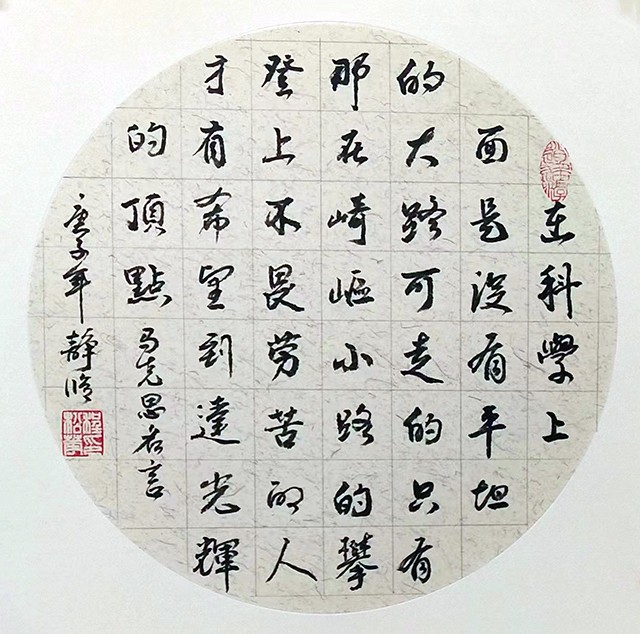 在科學上
面是没有平坦
的大路可走的只有
那在崎嶇小路的攀
登上不畏劳苦的人
才有希望到達光輝
的頂點 马克思名言
庚子年 静修